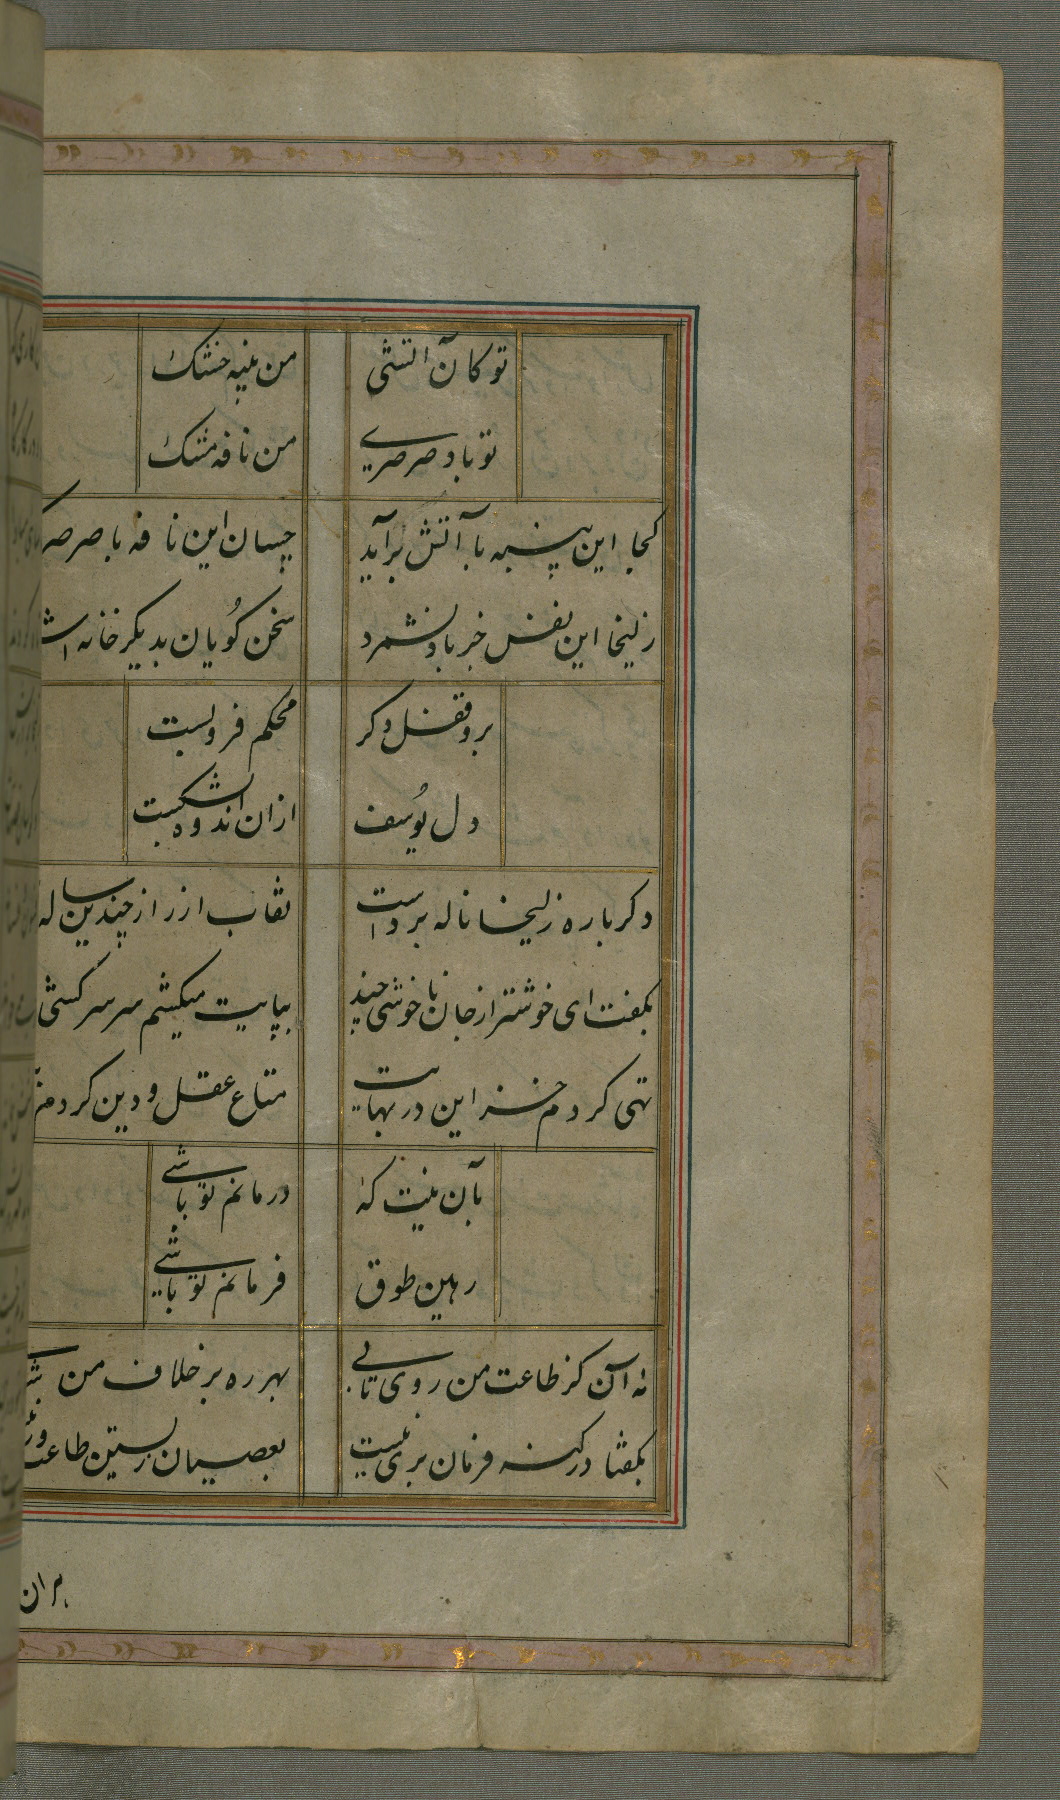 تو کان آتشی من پنبه خشک
تو باد صرصری من نافه مشک
کجا این پنبه با آتش برآید چسان این نافه با صرصر
زلیخا این نفس جز باد نشمرد سخن گویان بدیگر خانه اش
برو قفل دگر محکم فرو بست
دل یوسف ازان اندوه بشکست
دگر باره زلیخا ناله برداشت نقاب از راز چندین ساله
بگفت ای خوشتر از جان ناخوشی چند بپایت میکشم سر سرکشی
تهی کردم خزاین در بهایت متاع عقل و دین کردم
بآن نیت که درمانم تو باشی
رهین طوق فرمانم تو باشی
نه آن کز طاعت من روی تابی بهر ره بر خلاف من
بگفتا در گنه فرمان بری نیست بعصیان زیستن طاعت
بران